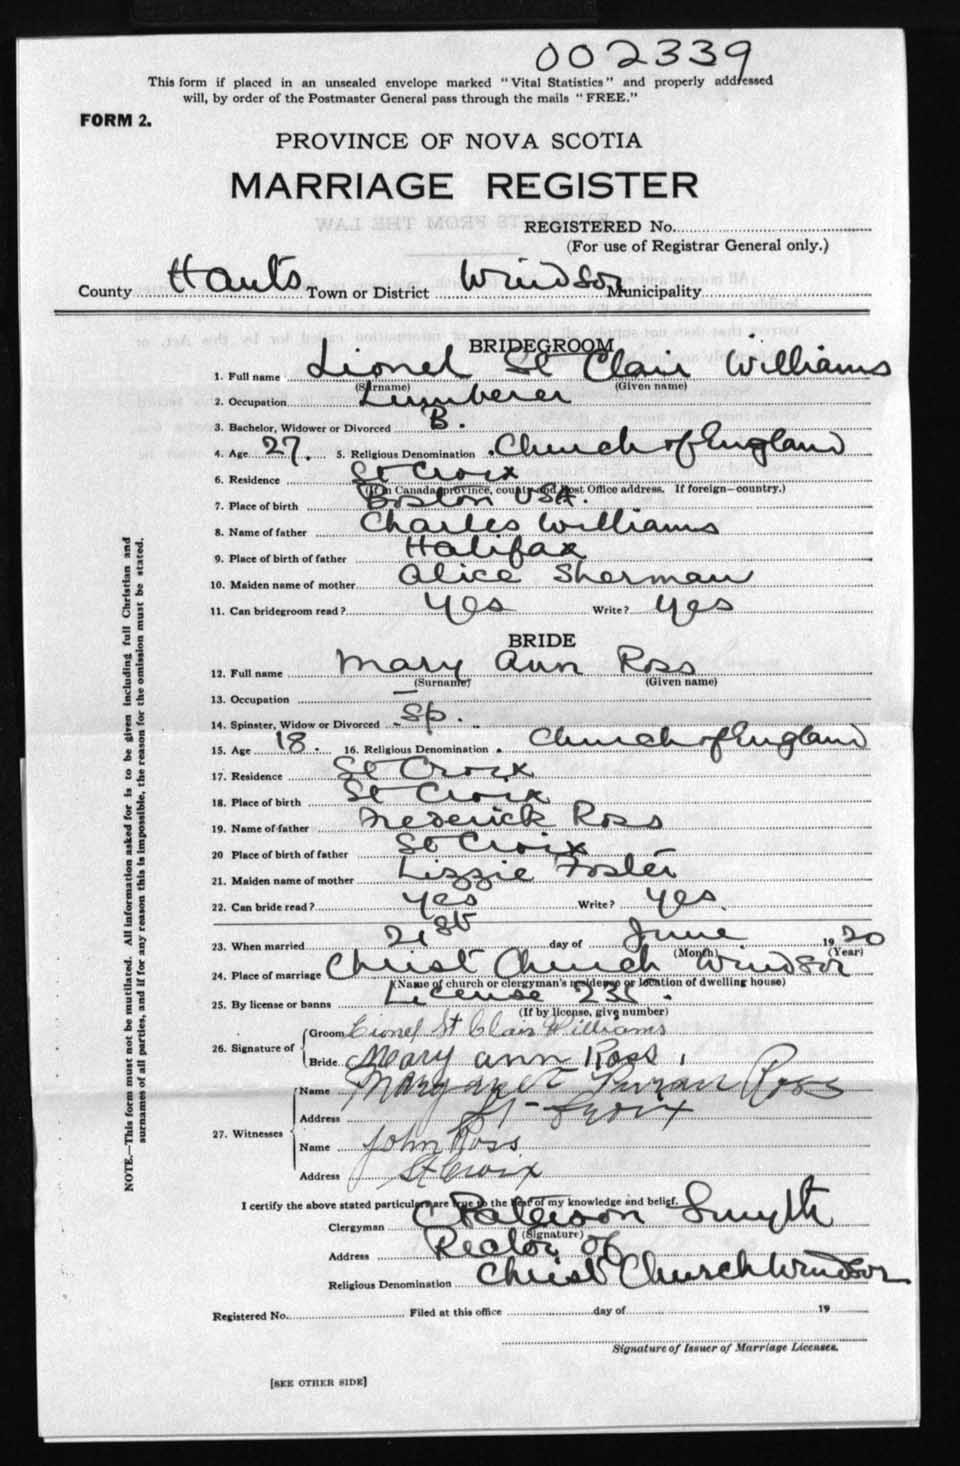 002339
This form if placed in an unsealed envelope marked "Vital Statistics" and properly addressed
will, by order of the Postmaster General pass through the mails "FREE."
FORM 2.
PROVINCE OF NOVA SCOTIA
MARRIAGE REGISTER
REGISTERED No.
(For use of Registrar General only.)
County Hants Town or District Windsor Municipality
BRIDEGROOM
1. Full name Lionel St Clair Williams
(Surname) (Given name)
2. Occupation Lumberer
3. Bachelor, Widower or Divorced B.
4. Age 27. 5. Religious Denomination Church of England
6. Residence St Croix
(If in Canada province, county and Post Office address. If foreign—country.)
7. Place of birth Boston USA.
8. Name of father Charles Williams
9. Place of birth of father Halifax
10. Maiden name of mother Alice Sherman
11. Can bridegroom read? Yes Write? Yes
BRIDE
12. Full name Mary Ann Ross
(Surname) (Given name)
13. Occupation —
14. Spinster, Widow or Divorced Sp.
15. Age 18. 16. Religious Denomination Church of England
17. Residence St Croix
18. Place of birth St Croix
19. Name of father Frederick Ross
20 Place of birth of father St Croix
21. Maiden name of mother Lizzie Foster
22. Can bride read? Yes Write? Yes.
23. When married 21st day of June 1920
(Month) (Year)
24. Place of marriage Christ Church Windsor
(Name of church or clergyman's residence or location of dwelling house)
25. By license or banns License
(If by license, give number)
26. Signature of Groom Lionel St Clair Williams
Bride Mary Ann Ross
27. Witnesses Name Margaret Ross
Address St Croix
Name John Ross
Address St Croix
I certify the above stated particulars are true to the best of my knowledge and belief.
Clergyman Paterson Smyth
(Signature)
Address Rector of
Religious Denomination Christ Church Windsor
Registered No. Filed at this office day of 19
Signature of Issuer of Marriage Licenses.
[SEE OTHER SIDE]
NOTE.—This form must not be mutilated. All information asked for is to be given including full Christian and
surnames of all parties, and if for any reason this is impossible, the reason for the omission must be stated.